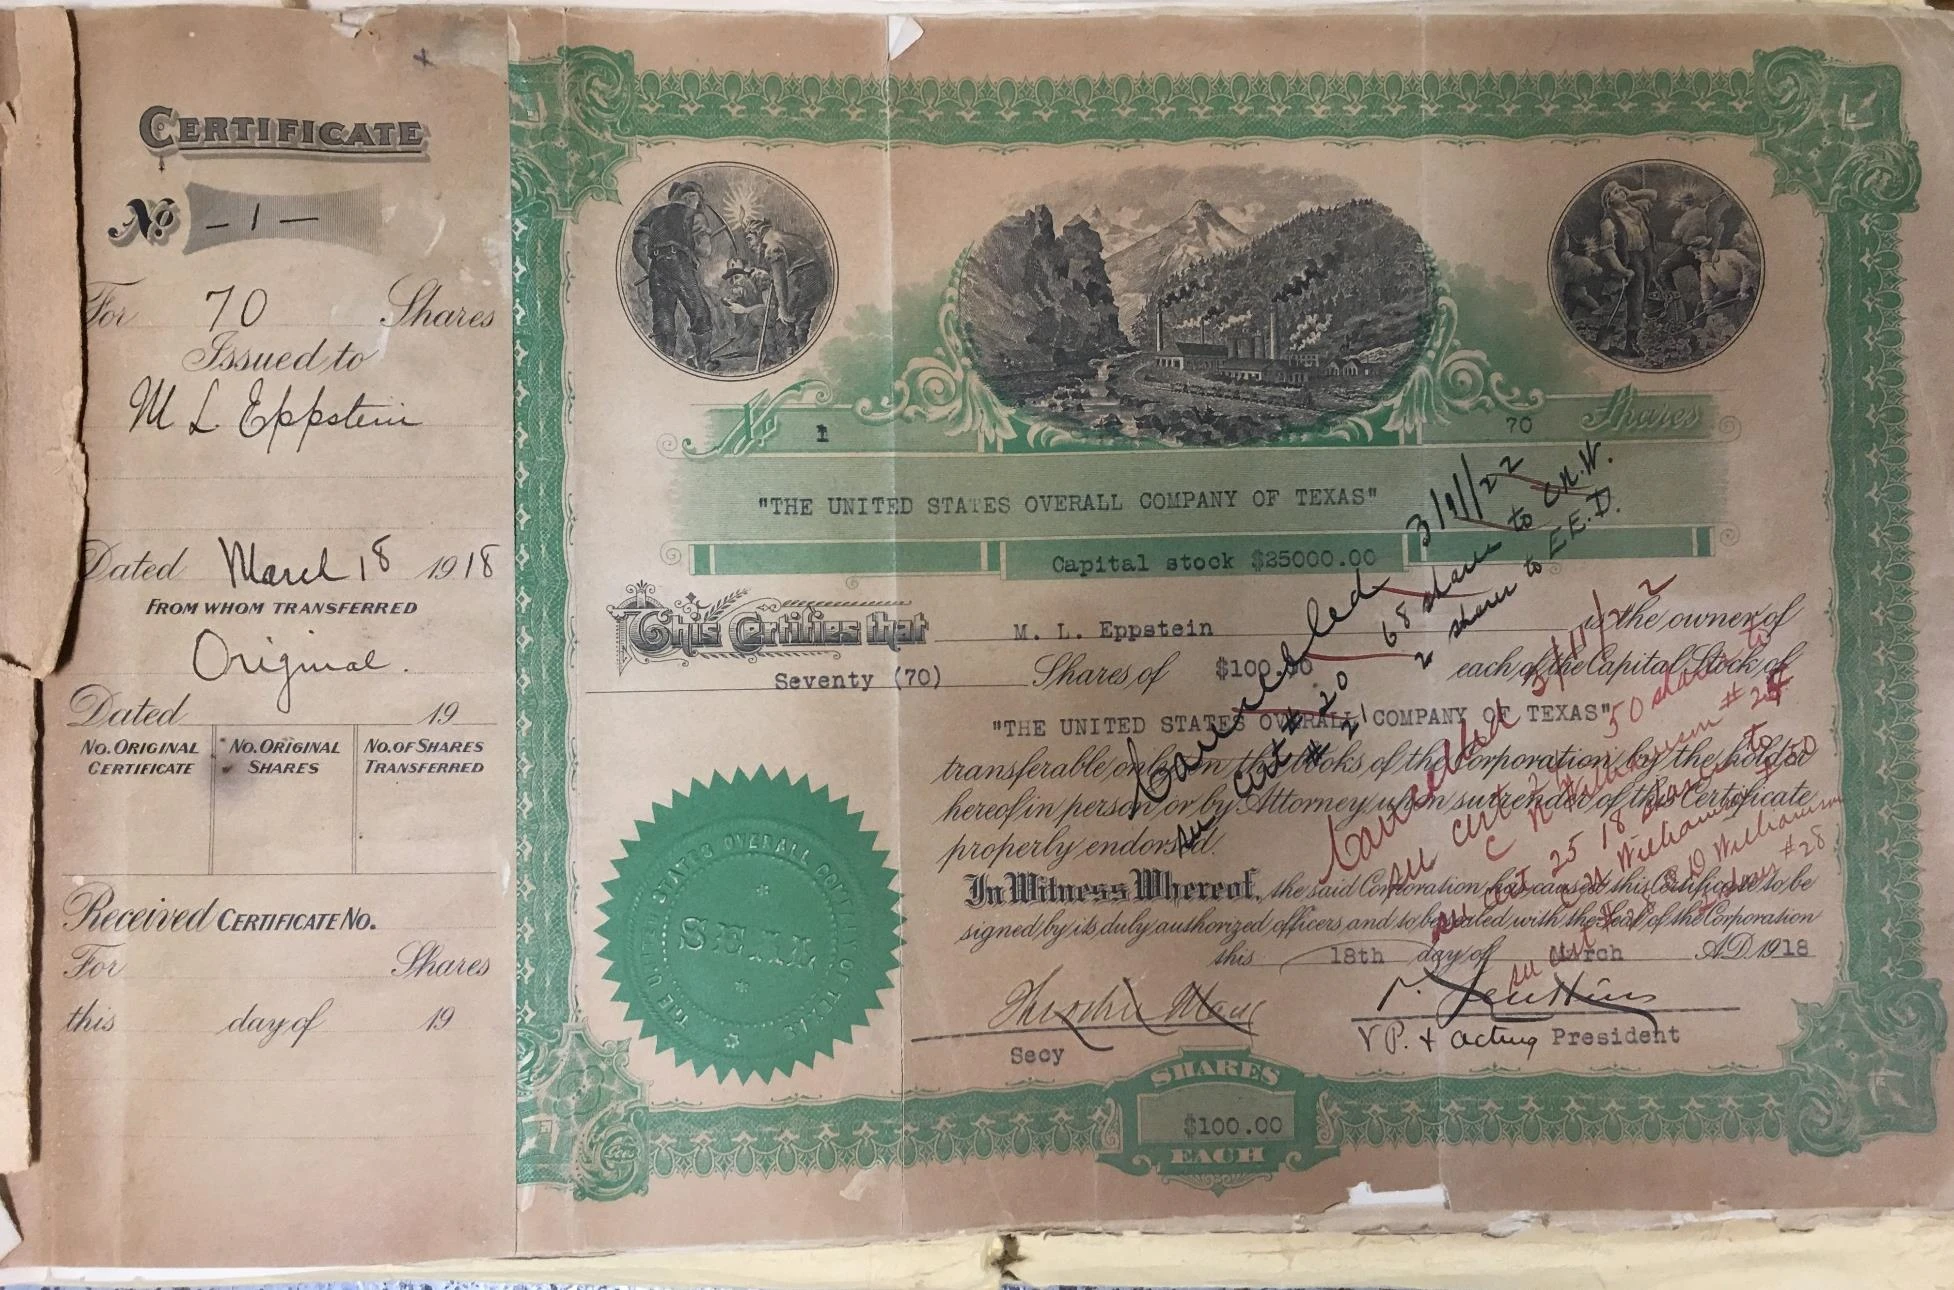 CERTIFICATE
No. -1-
For 70 Shares
Issued to
M L Eppstein
Dated March 18 1918
FROM WHOM TRANSFERRED
Original.
Dated 19
NO. ORIGINAL CERTIFICATE
NO. ORIGINAL SHARES
NO. OF SHARES TRANSFERRED
Received CERTIFICATE NO.
For Shares
this day of 19
No. 1
70 Shares
"THE UNITED STATES OVERALL COMPANY OF TEXAS"
Capital stock $25000.00
This Certifies that M. L. Eppstein is the owner of
Seventy (70) Shares of $100.00 each of the Capital Stock of
"THE UNITED STATES OVERALL COMPANY OF TEXAS"
transferable only on the books of the Corporation by the holder
hereof in person or by Attorney upon surrender of this Certificate
properly endorsed.
In Witness Whereof, the said Corporation has caused this Certificate to be
signed by its duly authorized officers and to be sealed with the Seal of the Corporation
this 18th day of March A.D. 1918
Secy
V P. + Acting President
SHARES
$100.00
EACH
THE UNITED STATES OVERALL COMPANY OF TEXAS
SEAL
Cancelled
68 shares to C.N.W.
2 shares to E.E.D.
# 20
# 21
Cancelled
50 shares to
18 shares to